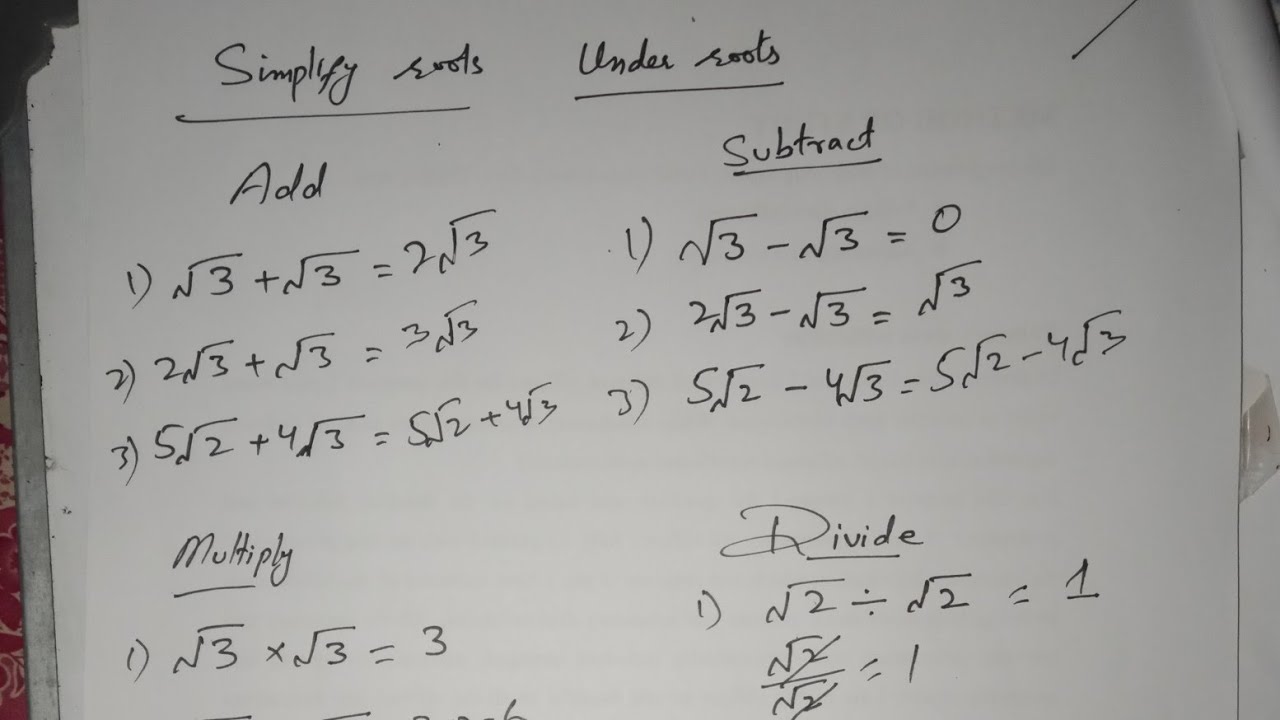 Simplify roots Under roots
Add
1) √3 + √3 = 2√3
2) 2√3 + √3 = 3√3
3) 5√2 + 4√3 = 5√2 + 4√3
Subtract
1) √3 - √3 = 0
2) 2√3 - √3 = √3
3) 5√2 - 4√3 = 5√2 - 4√3
Multiply
1) √3 × √3 = 3
Divide
1) √2 ÷ √2 = 1
√2/√2 = 1